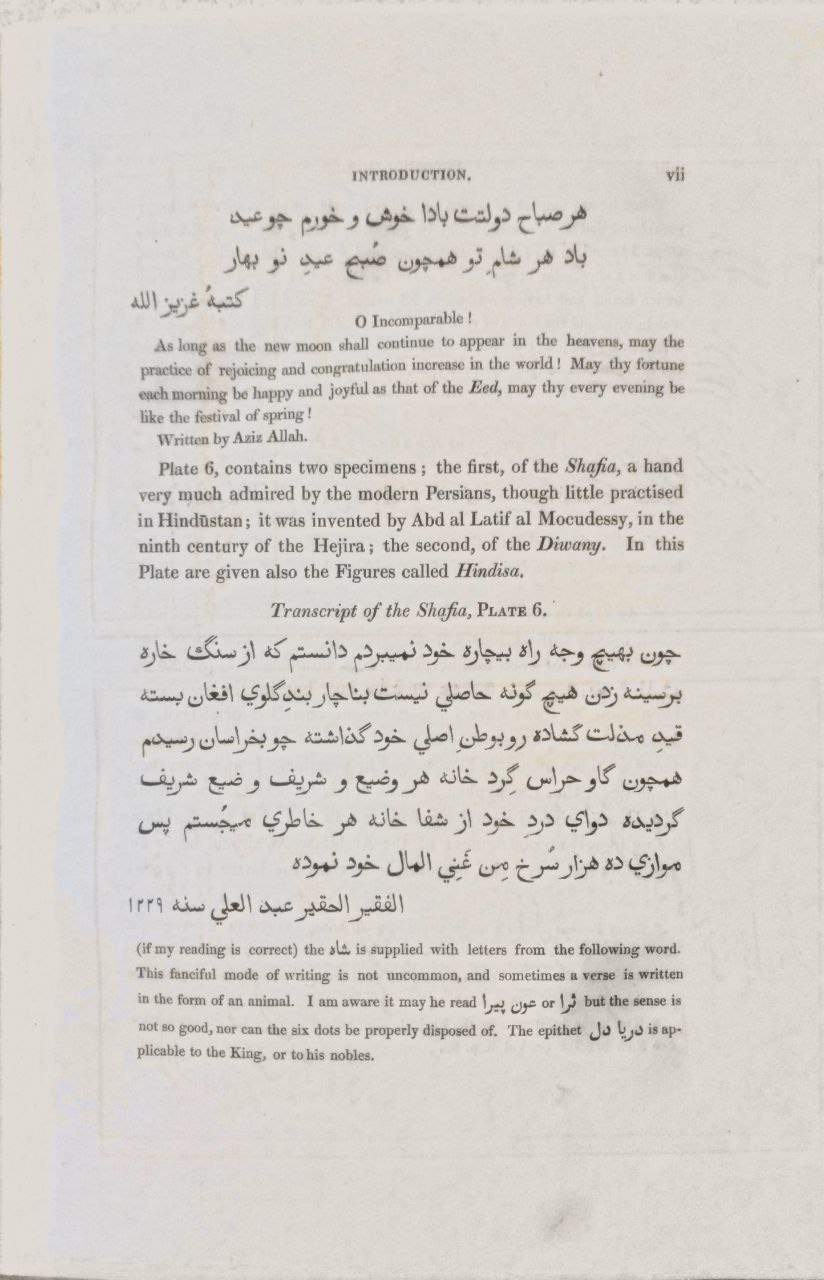 INTRODUCTION. vii
هر صباح دولتت بادا خوش و خورم چو عيد
باد هر شامِ تو همچون صُبحِ عيدِ نو بهار
كتبهُ غزيز الله
O Incomparable !
As long as the new moon shall continue to appear in the heavens, may the
practice of rejoicing and congratulation increase in the world! May thy fortune
each morning be happy and joyful as that of the Eed, may thy every evening be
like the festival of spring !
Written by Aziz Allah.
Plate 6, contains two specimens ; the first, of the Shafia, a hand
very much admired by the modern Persians, though little practised
in Hindūstan ; it was invented by Abd al Latif al Mocudessy, in the
ninth century of the Hejira ; the second, of the Diwany. In this
Plate are given also the Figures called Hindisa.
Transcript of the Shafia, PLATE 6.
چون بهيچ وجه راه بيچاره خود نميبردم دانستم كه از سنگ خاره
برسينه زدن هيچ گونه حاصلي نيست بناچار بندِ گلوي افغان بسته
قيدِ مذلت گشاده رو بوطنِ اصلي خود گذاشته چو بخراسان رسيدم
همچون گاو حراس گِرد خانه هر وضيع و شريف و ضيع شريف
گرديده دواي دردِ خود از شفا خانه هر خاطري ميجُستم پس
موازي ده هزار سُرخ مِن غَنِي المال خود نموده
الفقير الحقير عبد العلي سنه ١٢٢٩
(if my reading is correct) the شاه is supplied with letters from the following word.
This fanciful mode of writing is not uncommon, and sometimes a verse is written
in the form of an animal. I am aware it may he read عون پيرا or ثرا but the sense is
not so good, nor can the six dots be properly disposed of. The epithet دريا دل is ap-
plicable to the King, or to his nobles.